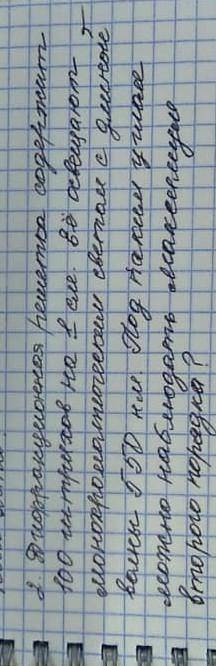 2. Дифракционная решетка содержит
100 штрихов на 1 см. Её освещают
монохроматическим светом с длиной
волны 550 нм. Под каким углом
можно наблюдать максимум
второго порядка?